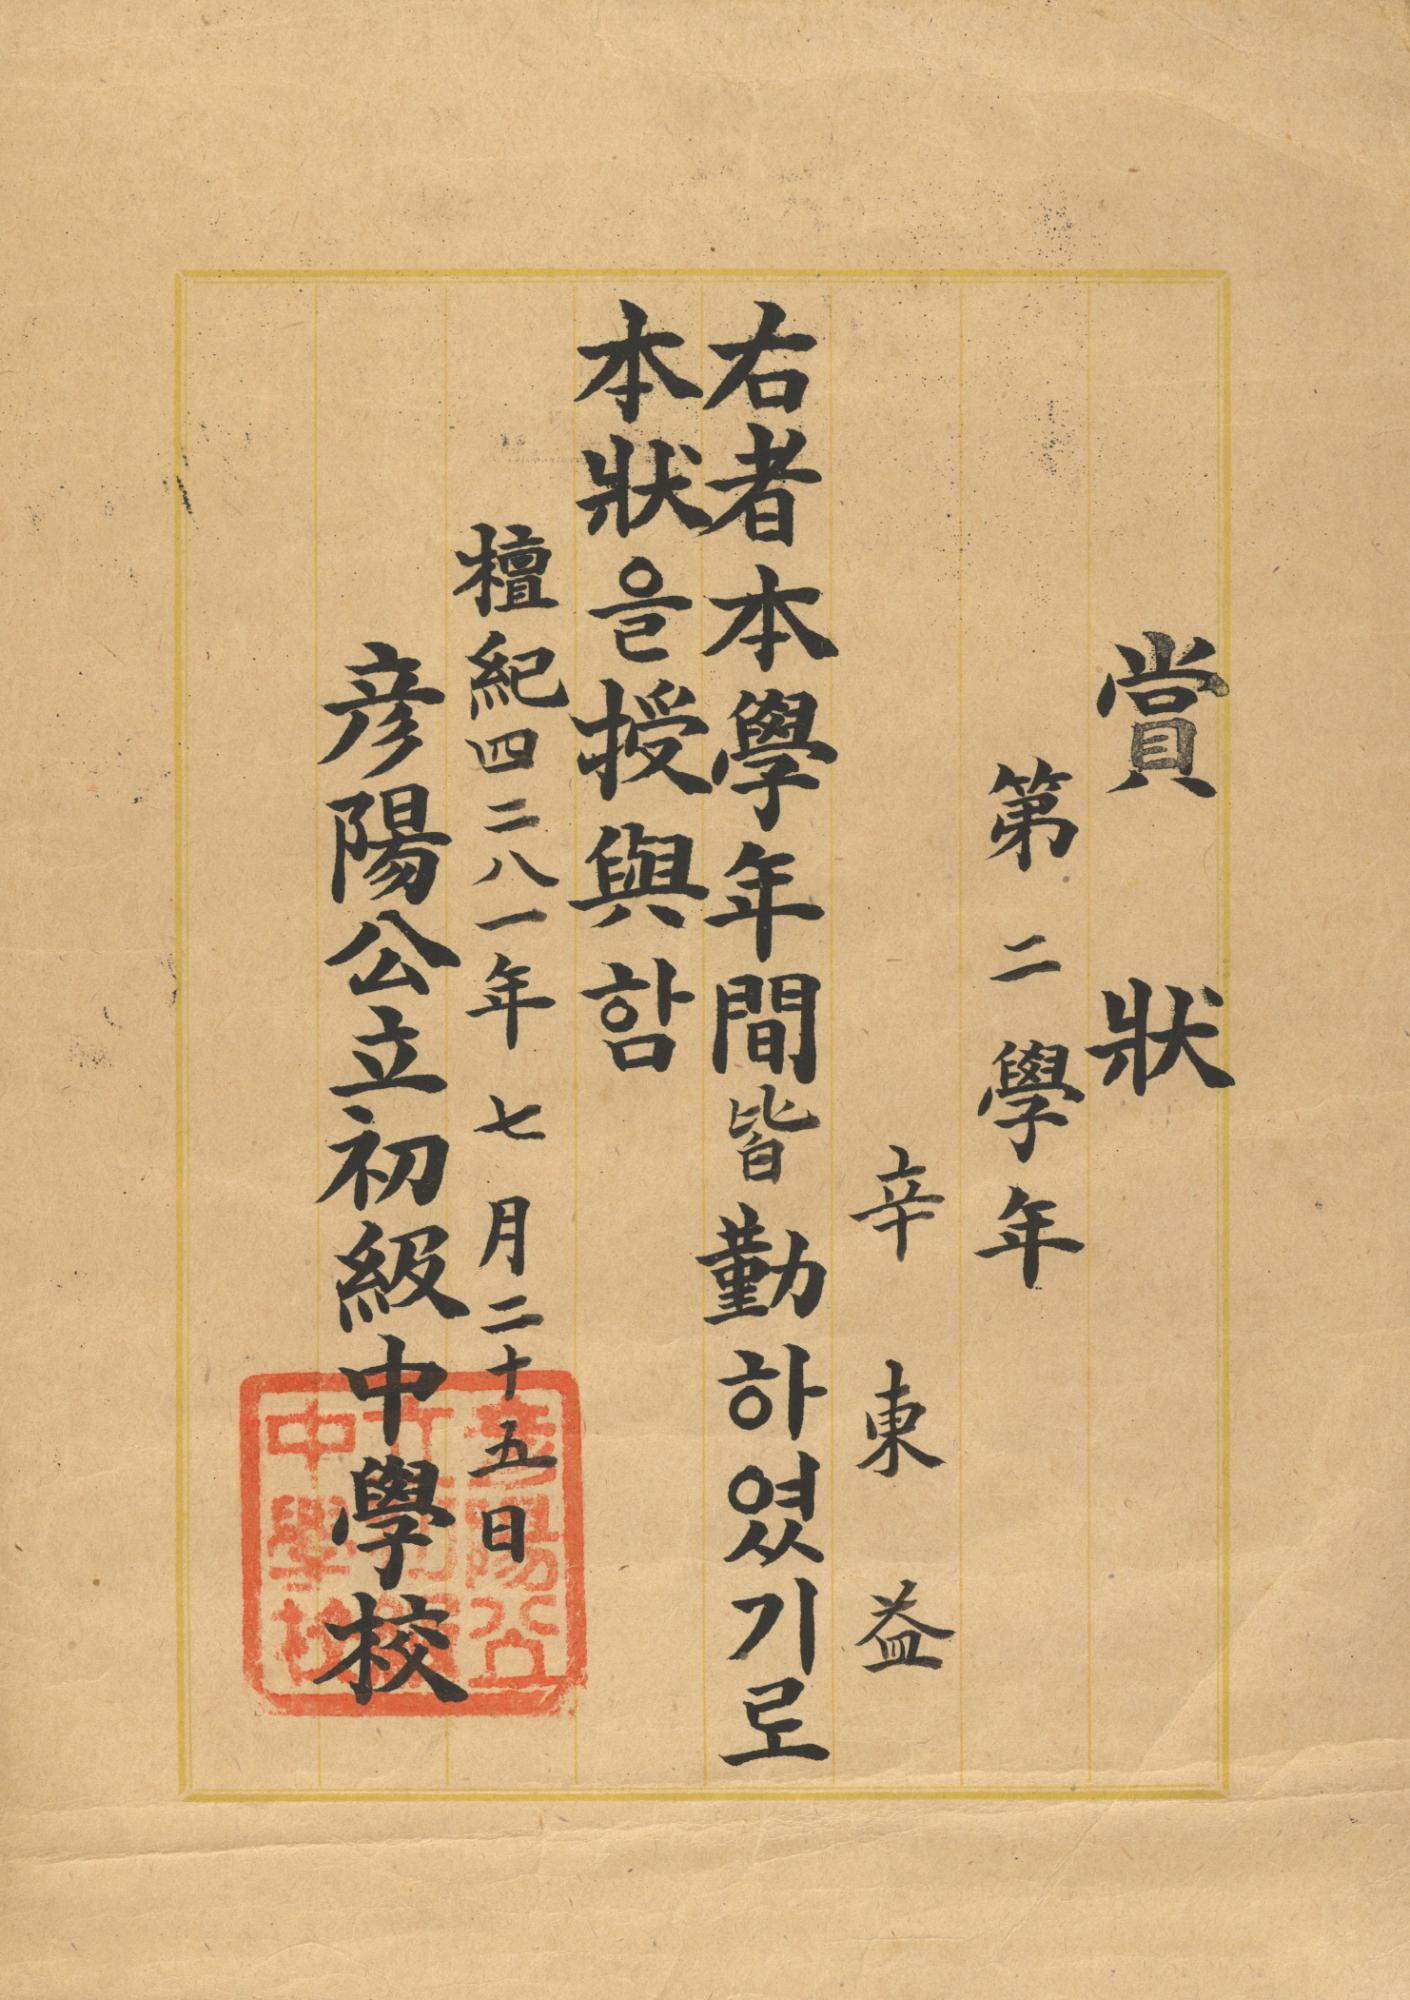 賞狀
第二學年
辛東益
右者本學年間皆勤하였기로
本狀을授與함
檀紀四二八一年七月二十五日
彦陽公立初級中學校
彦陽公
立初級
中學校